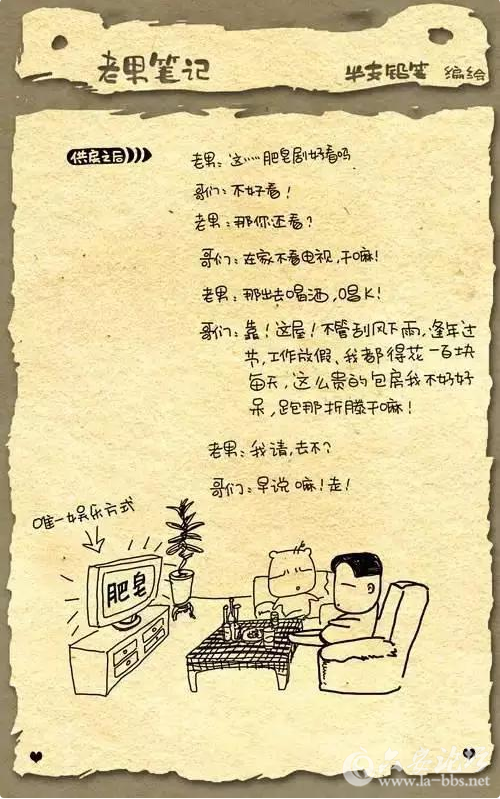 老男笔记
半支铅笔 编绘
供房之后
老男：这……肥皂剧好看吗
哥们：不好看！
老男：那你还看？
哥们：在家不看电视，干嘛！
老男：那出去喝酒，唱K！
哥们：靠！这屋！不管刮风下雨，逢年过
节，工作放假、我都得花一百块
每天，这么贵的包房我不好好
呆，跑那折腾干嘛！
老男：我请，去不？
哥们：早说嘛！走！
唯一娱乐方式
肥皂
www.la-bbs.net